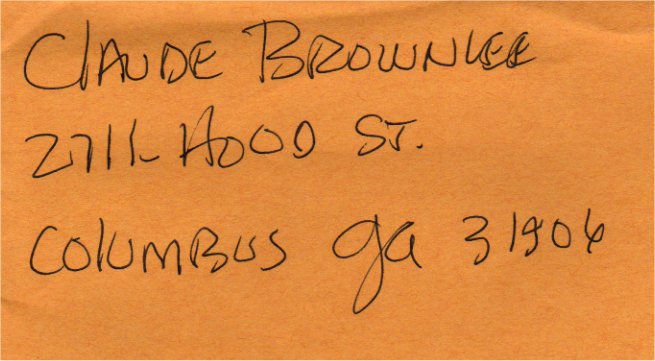 Claude Brownlee
2711- Hood St.
Columbus Ga 31906